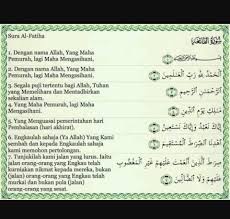 Sura Al-Fatiha
1. Dengan nama Allah, Yang Maha
Pemurah, lagi Maha Mengasihani.
2. Dengan nama Allah, Yang Maha
Pemurah, lagi Maha Mengasihani.
3. Segala puji tertentu bagi Allah, Tuhan
yang Memelihara dan Mentadbirkan
sekalian alam.
4. Yang Maha Pemurah, lagi Maha
Mengasihani.
5. Yang Menguasai pemerintahan hari
Pembalasan (hari akhirat).
6. Engkaulah sahaja (Ya Allah) Yang Kami
sembah dan kepada Engkaulah sahaja kami
memohon pertolongan.
7. Tunjukilah kami jalan yang lurus. Iaitu
jalan orang-orang yang Engkau telah
kurniakan nikmat kepada mereka, bukan
(jalan) orang-orang yang Engkau telah
murkai dan bukan pula (jalan)
orang-orang yang sesat.
سُورَةُ الْفَاتِحَةِ
بِسْمِ اللَّهِ الرَّحْمَٰنِ الرَّحِيمِ
الْحَمْدُ لِلَّهِ رَبِّ الْعَالَمِينَ
الرَّحْمَٰنِ الرَّحِيمِ
مَالِكِ يَوْمِ الدِّينِ
إِيَّاكَ نَعْبُدُ وَإِيَّاكَ نَسْتَعِينُ
اهْدِنَا الصِّرَاطَ الْمُسْتَقِيمَ
صِرَاطَ الَّذِينَ أَنْعَمْتَ عَلَيْهِمْ غَيْرِ الْمَغْضُوبِ
عَلَيْهِمْ وَلَا الضَّالِّينَ